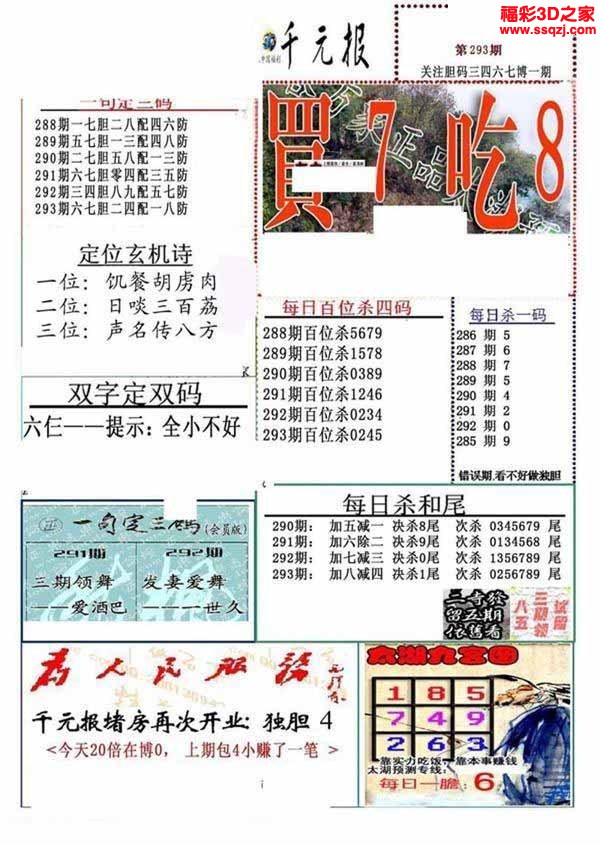 福彩3D之家
www.ssqzj.com
千元报
第293期
关注胆码三四六七博一期
一句定三码
288期一七胆二八配四六防
289期五七胆一三配四八防
290期二七胆五八配一三防
291期六七胆零四配三五防
292期三四胆八九配五七防
293期六七胆二四配一八防
買7吃8
定位玄机诗
一位：饥餐胡虏肉
二位：日啖三百荔
三位：声名传八方
双字定双码
六仨——提示：全小不好
每日百位杀四码
288期百位杀5679
289期百位杀1578
290期百位杀0389
291期百位杀1246
292期百位杀0234
293期百位杀0245
每日杀一码
286 期 5
287 期 6
288 期 7
289 期 5
290 期 4
291 期 2
292 期 0
285 期 9
错误期,看不好做独胆
正 一句定三码(会员版)
291期
三期领舞
——爱酒巴
292期
发妻爱舞
——一世久
每日杀和尾
290期： 加五减一 决杀8尾 次杀 0345679 尾
291期： 加六除二 决杀9尾 次杀 0134568 尾
292期： 加七减三 决杀0尾 次杀 1356789 尾
293期： 加八减四 决杀1尾 次杀 0256789 尾
三奇發
留五期
依舊看
为人民服务
千元报堵房再次开业: 独胆 4
<今天20倍在博0， 上期包4小赚了一笔 >
太湖九宫图
1 8 5
7 4 9
2 6 3
靠实力吃饭 靠本事赚钱
太湖预测专线:
每日一胆: 6